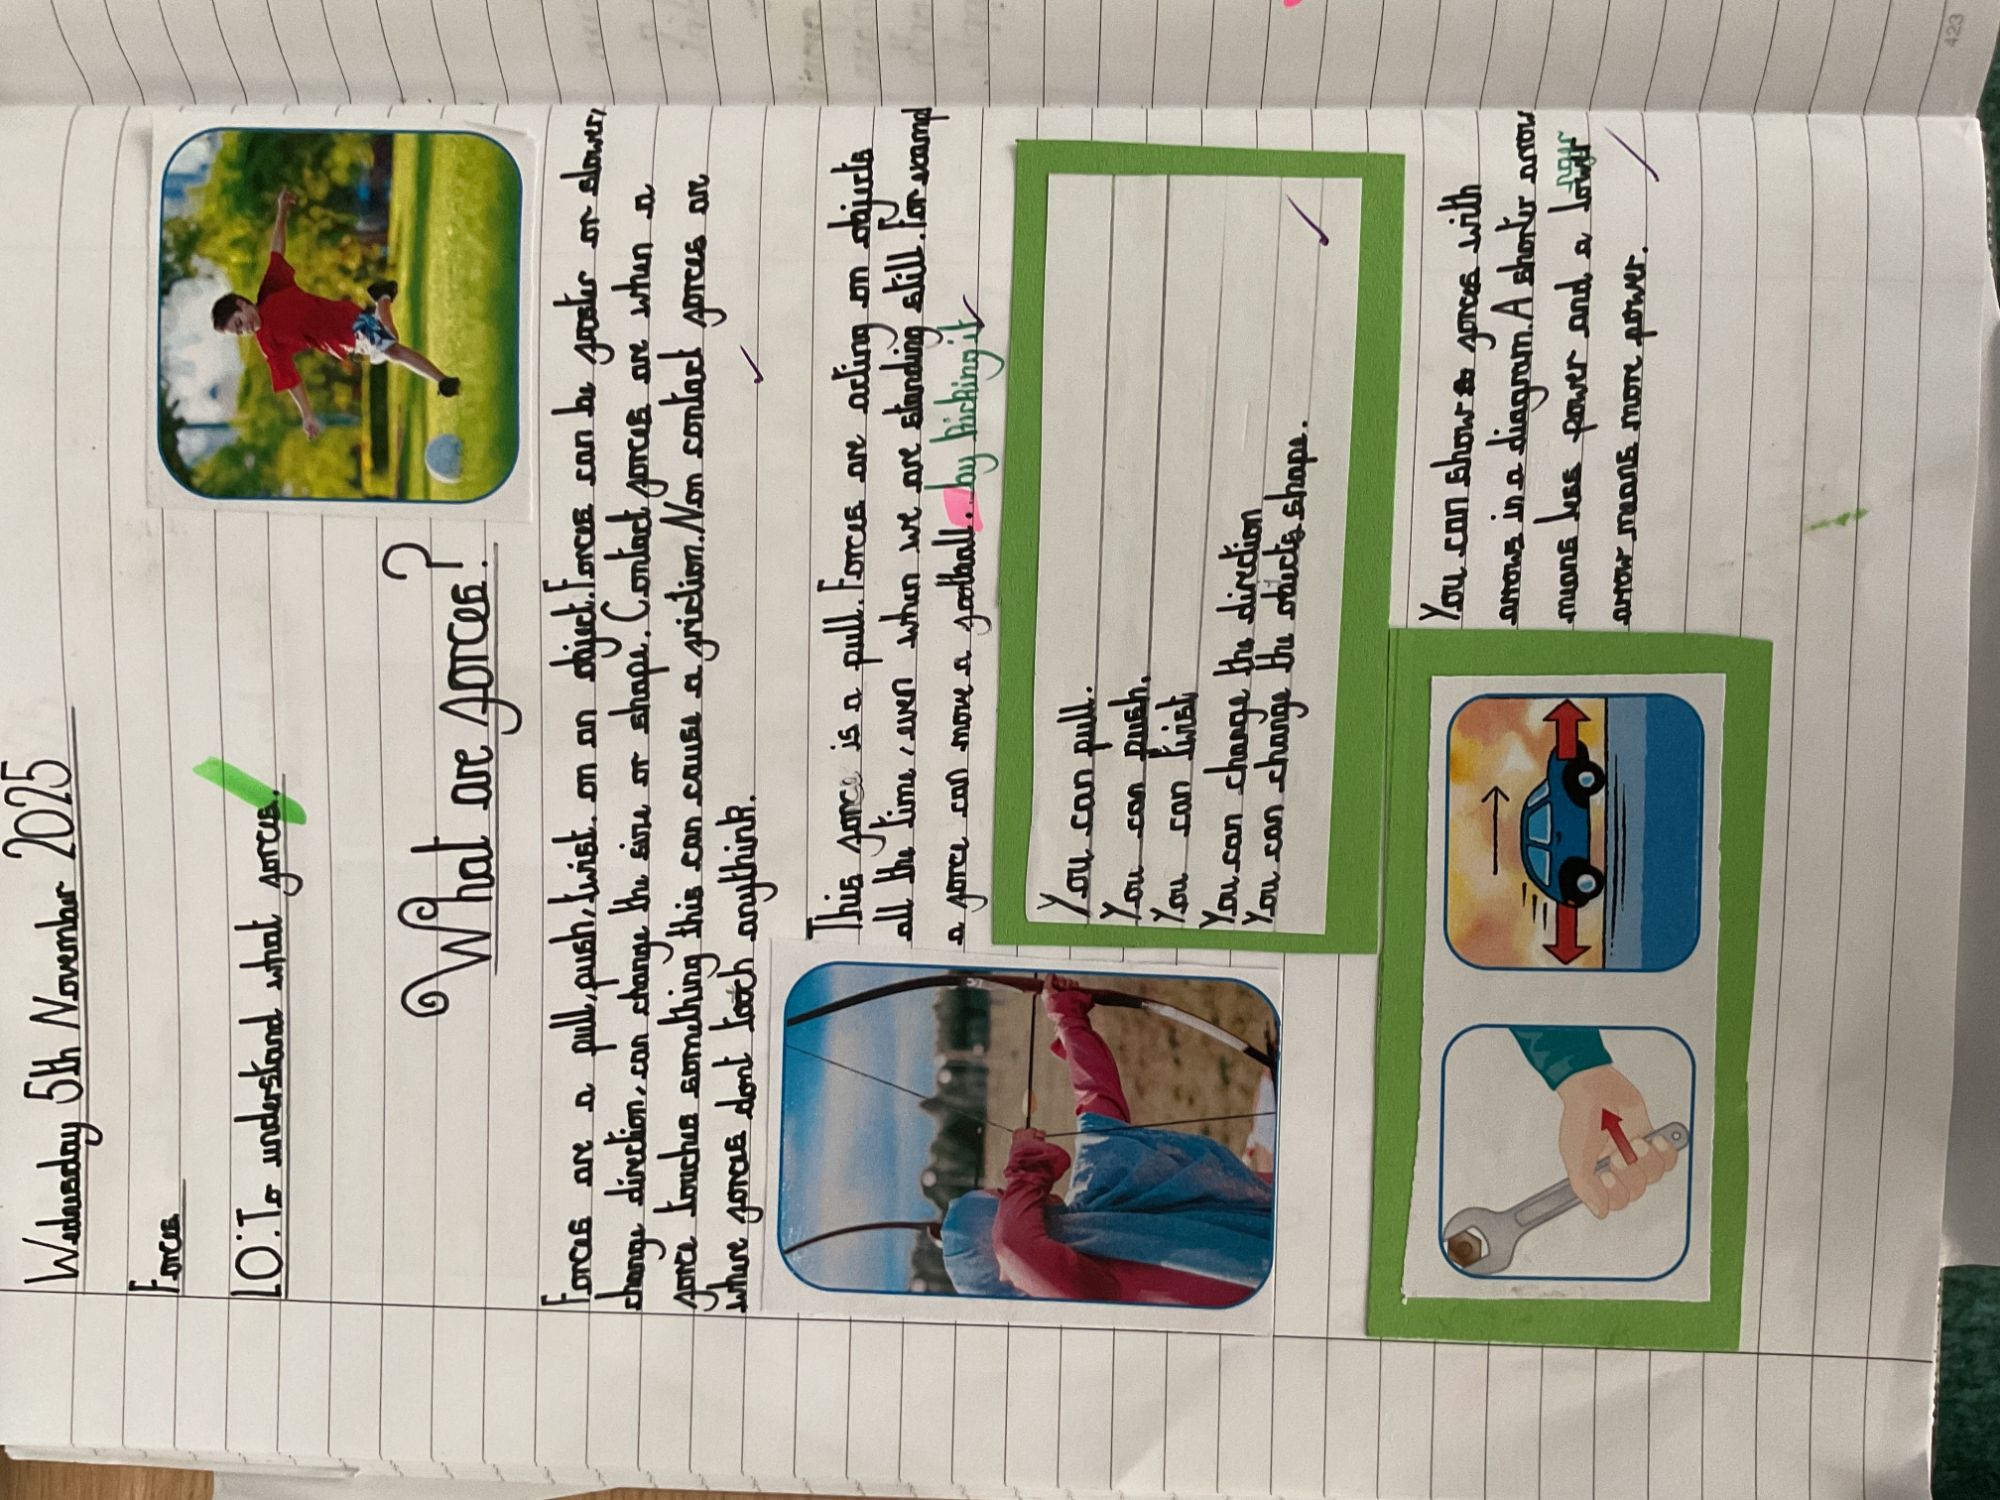 Wednesday 5th November 2025
Forces
LO: To understand what forces.
What are forces?
Forces are a pull, push, twist. on an object. Forces can be faster or slower,
change direction, can change the sire or shape. Contact forces are when a
force touches something this can cause a friction. Non contact forces are
where forces dont tooch anythink.
This force is a pull. Forces are acting on objects
all the time, even when we are standing still. For exampl
a force can move a football. by kicking it
You can pull.
You can push.
You can twist
You can change the direction
You can change the objects shape.
You can show a forces with
arrows in a diagram. A shorter arrow
means less power and a
arrow means more power.
423